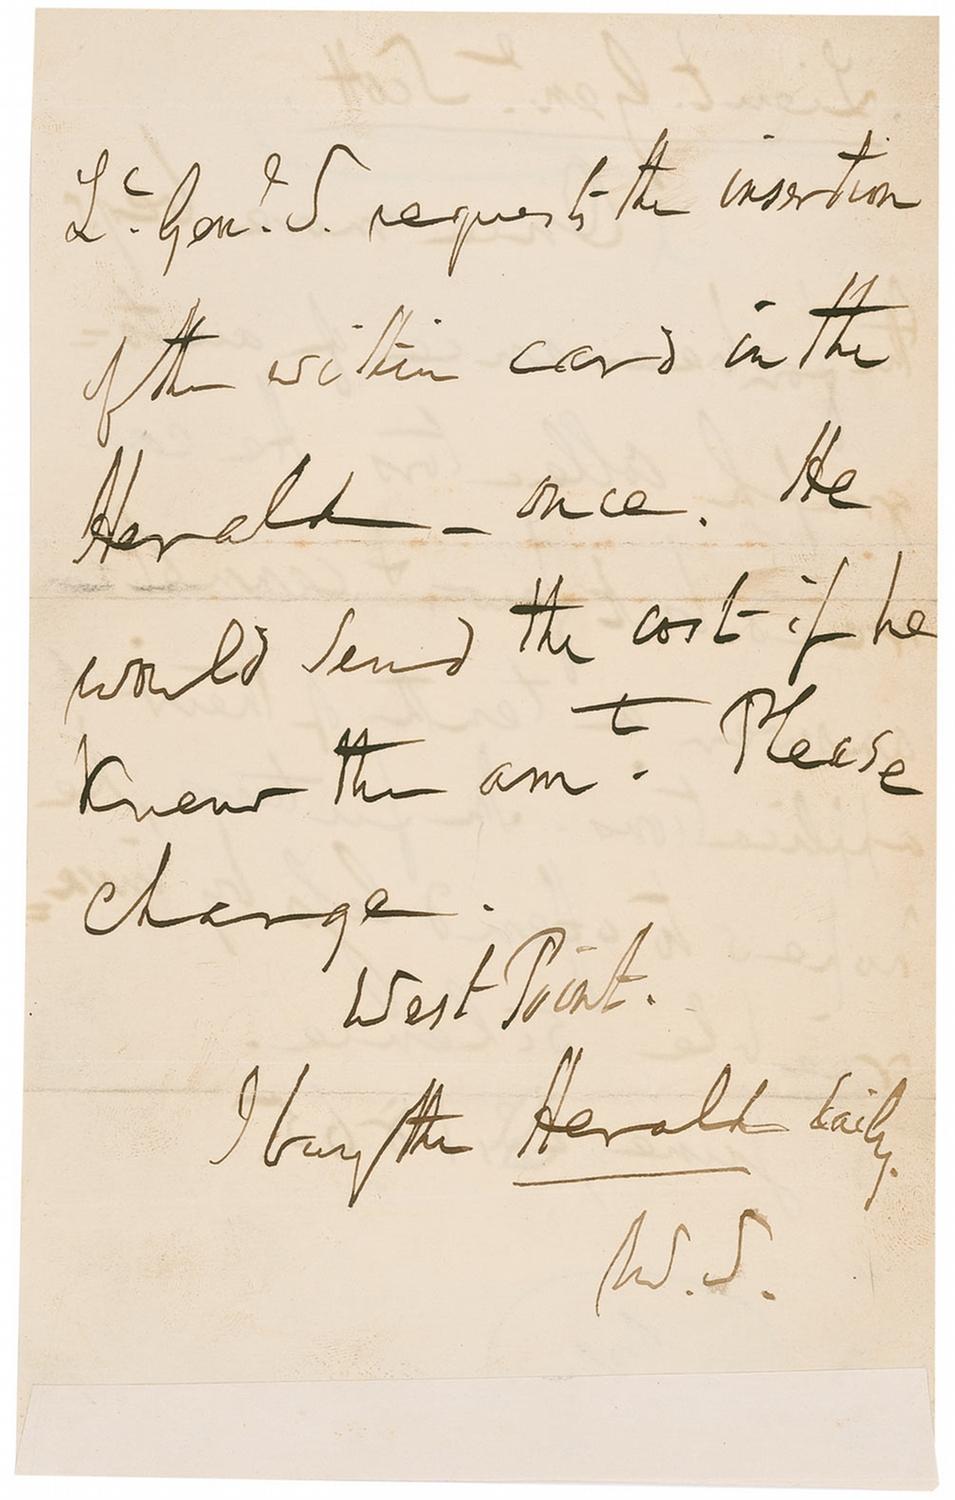 Lt. Genl. S. requests the insertion
of the within card in the
Herald – once. He
would send the cost if he
knew the amt. Please
charge.
West Point.
I buy the Herald daily.
W. S.